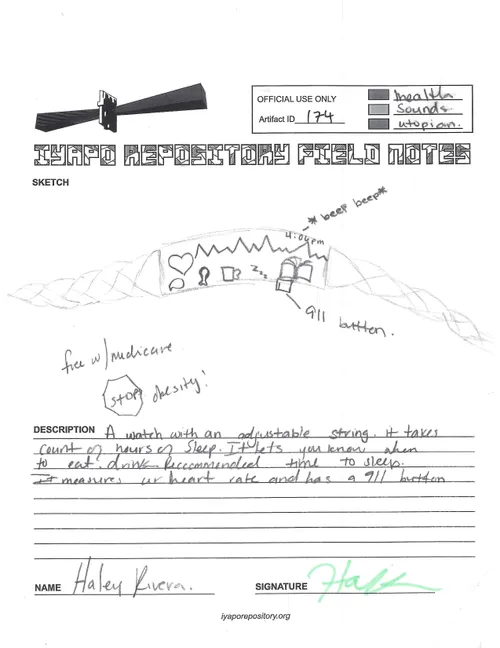 OFFICIAL USE ONLY
Artifact ID 174
health
Sounds
utopian.
IYAPO REPOSITORY FIELD NOTES
SKETCH
* beep beep *
4:04pm
zzz
911 button.
free w/medicare
stop obesity!
DESCRIPTION A watch with an adjustable string. it takes
count of hours of sleep. It lets you know when
to eat, drink Reccommended time to sleep.
It measures ur heart rate and has a 911 button
NAME Haley Rivera.
SIGNATURE
iyaporepository.org